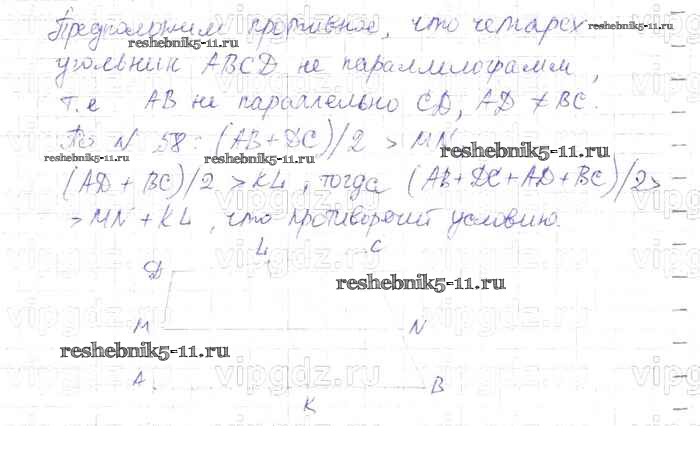 Предположим противное, что четырех
reshebnik5-11.ru
reshebnik5-11.ru
угольник ABCD не параллилограмм,
т.е AB не параллельно CD, AD ≠ BC.
По N 58: (AB+DC)/2 > MN
reshebnik5-11.ru
reshebnik5-11.ru
reshebnik5-11.ru
(AD + BC)/2 > KL, тогда (AB+DC+AD+BC)/2>
> MN + KL, что противоречит условию.
L C
D
reshebnik5-11.ru
M N
reshebnik5-11.ru
A B
K
vipgdz.ru
vipgdz.ru
vipgdz.ru